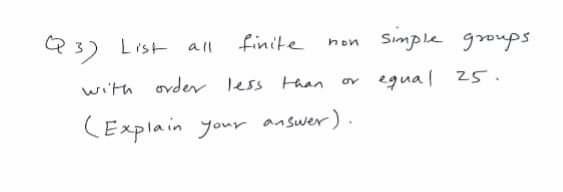 Q 3) List all finite non simple groups
with order less than or equal 25.
(Explain your answer).